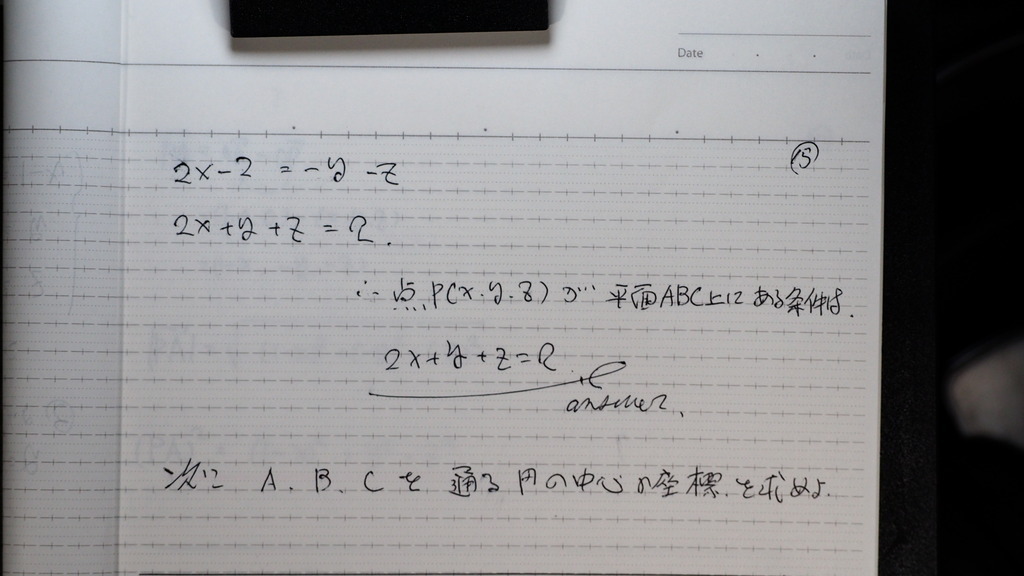 Date
⑮
2x-2 = -y -z
2x+y+z=2.
∴ 点 P(x.y.z) が 平面ABC上に ある条件は.
2x+y+z=2
answer.
次に A. B. C を 通る 円の中心の座標.を求めよ.